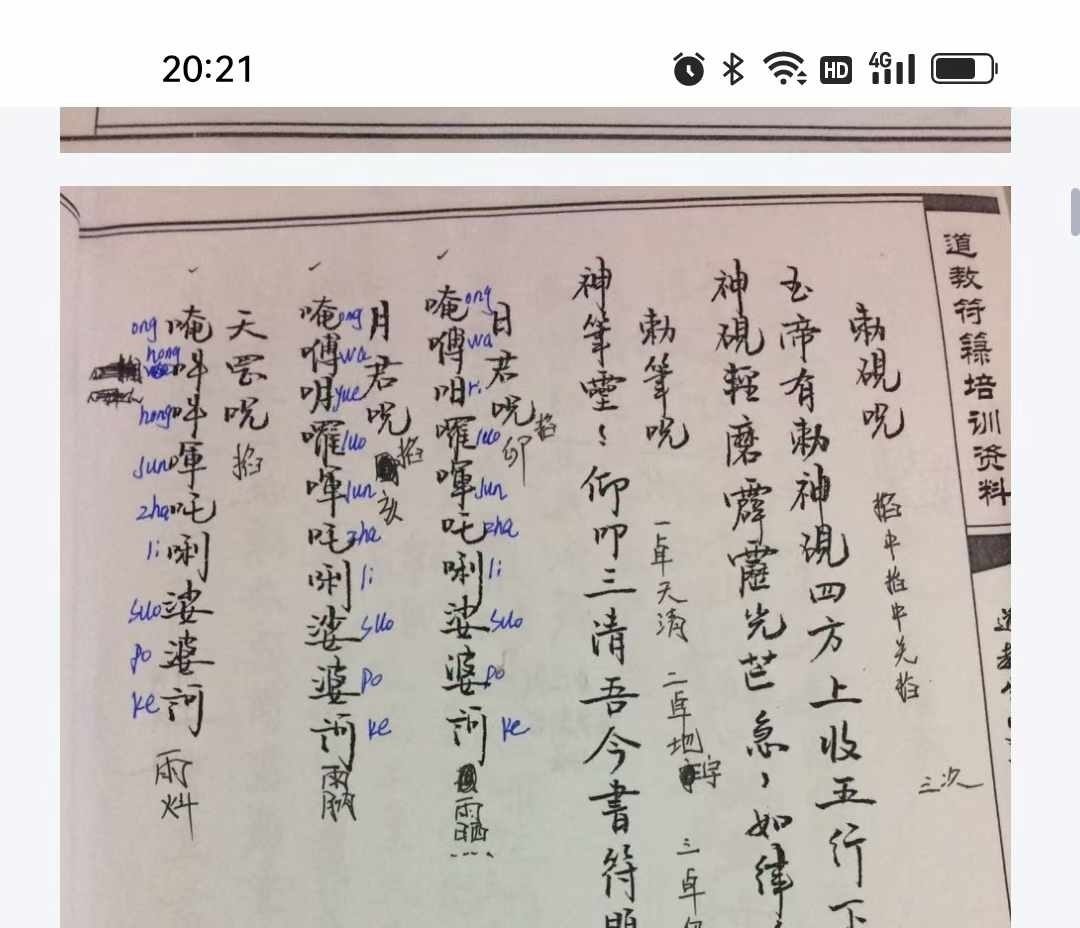 20:21
HD
4G
道教符籙培训资料
勅硯呪
三次
玉帝有勅神硯四方上收五行下
神硯輕磨霹靂光芒急々如律
勅筆呪
一卓天清 二卓地 三卓
神筆靈々仰叩三清吾今書符
日君呪 掐
卯
唵嚩 囉 吒唎娑婆訶
ong wa ri luo jun zha li suo po ke
月君呪 掐
亥
唵嚩 囉 吒唎娑婆訶
ong wa yue luo jun zha li suo po ke
天罡呪 掐
唵吽吽 吒唎娑婆訶
ong hong hong jun zha li suo po ke